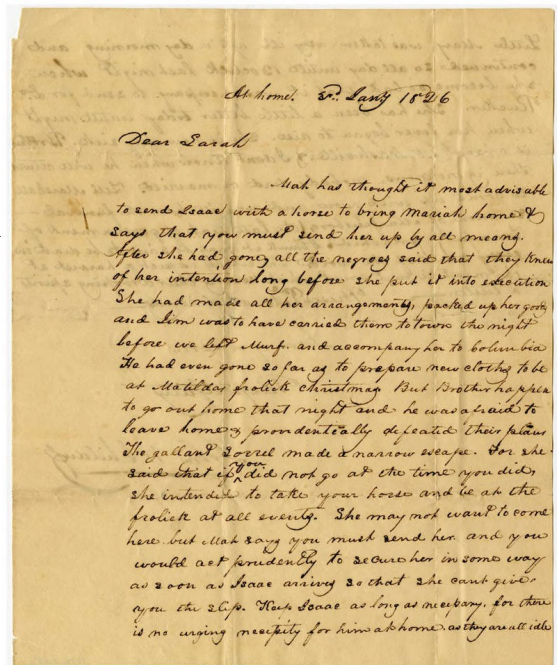 At home. 3d. Jany 1826
Dear Sarah
Mah has thought it most advisable
to send Isaac with a horse to bring Mariah home &
says that you must send her up by all means.
After she had gone, all the negroes said that they knew
of her intention long before she put it into execution
She had made all her arrangements, packed up her goods
and Jim was to have carried them to town the night
before we left Murf. and accompany her to Columbia
He had even gone so far as to prepare new cloths to be
at Matildas frolick christmas But Brother happen
to go out home that night and he was afraid to
leave home & providentically defeated their plans
The gallant Sorrel made a narrow escape. For she
said that if you did not go at the time you did,
she intended to take your horse and be at the
frolick at all events. She may not want to come
here but Mah says you must send her. and you
would act prudently to secure her in some way
as soon as Isaac arrives so that she cant give
you the slip. Keep Isaac as long as necessary. for there
is no urging necessity for him at home. as they are all idle